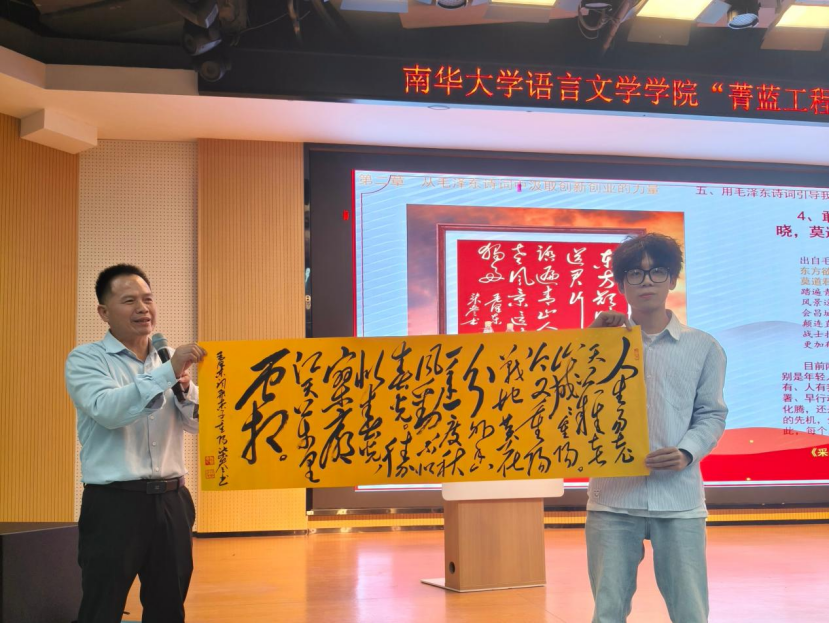 南华大学语言文学学院“菁蓝工程
第二章 从毛泽东诗词中汲取创新创业的力量
五、用毛泽东诗词引导我
4、敢
晓，莫道
出自毛
东方欲
莫道君
踏遍青
风景这
会昌城
颠连直
战士指
更加郁
目前两
别是年轻
有、人有我
署、早行动
化腾，还
的先机，
此，每个
《采
人生易老
天难老岁
岁重阳。
今又重阳
战地黄花
分外香
一年一度秋
风劲不似
春光。胜
似春光
寥廓
江天万里
霜。
毛泽东词采桑子重阳